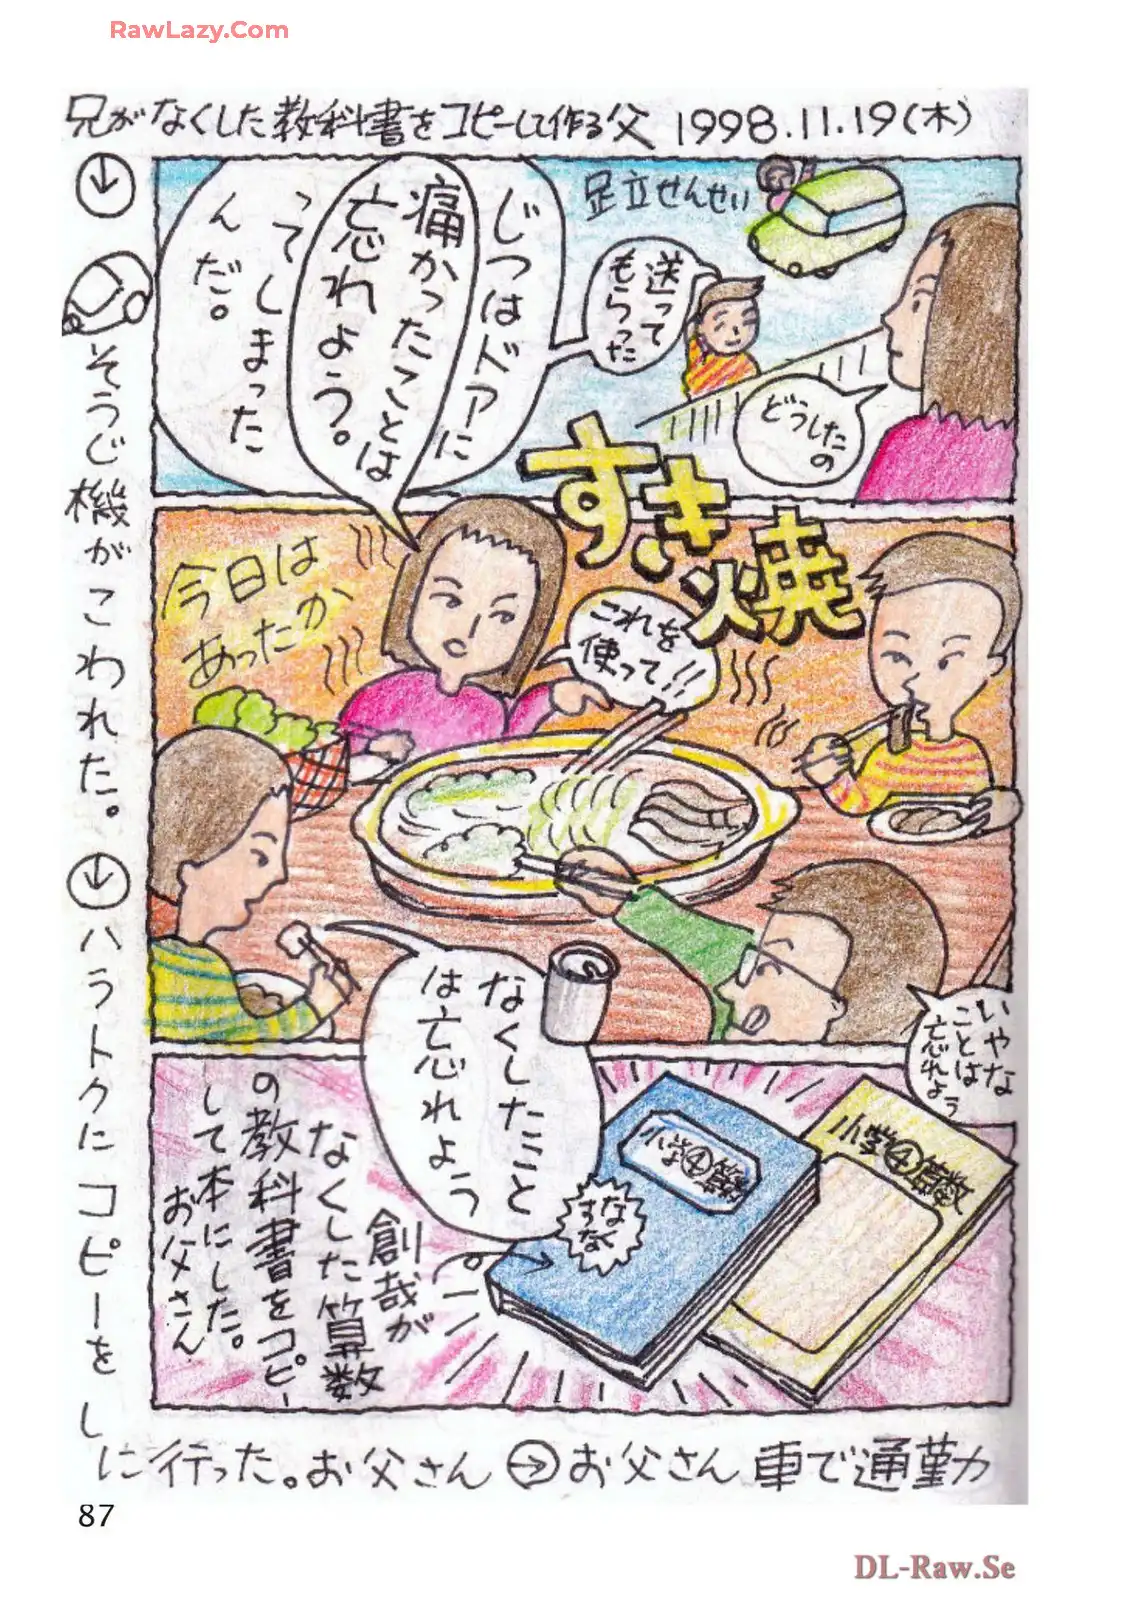 RawLazy.Com
兄がなくした教科書をコピーして作る父 1998.11.19(木)
足立せんせい
どうしたの
送って
もらった
じつはドアに
痛かったことは
忘れよう。
ってしまった
んだ。
すき焼
今日は
あったか
これを
使って!!
いやな
ことは
忘れよう
なくしたこと
は忘れよう
小学④算数
小学④算数
なく
すな
創哉が
なくした算数
の教科書をコピー
して本にした。
お父さん
そうじ機がこわれた。
ハラトクにコピーをし
に行った。お父さん
お父さん車で通勤
87
DL-Raw.Se